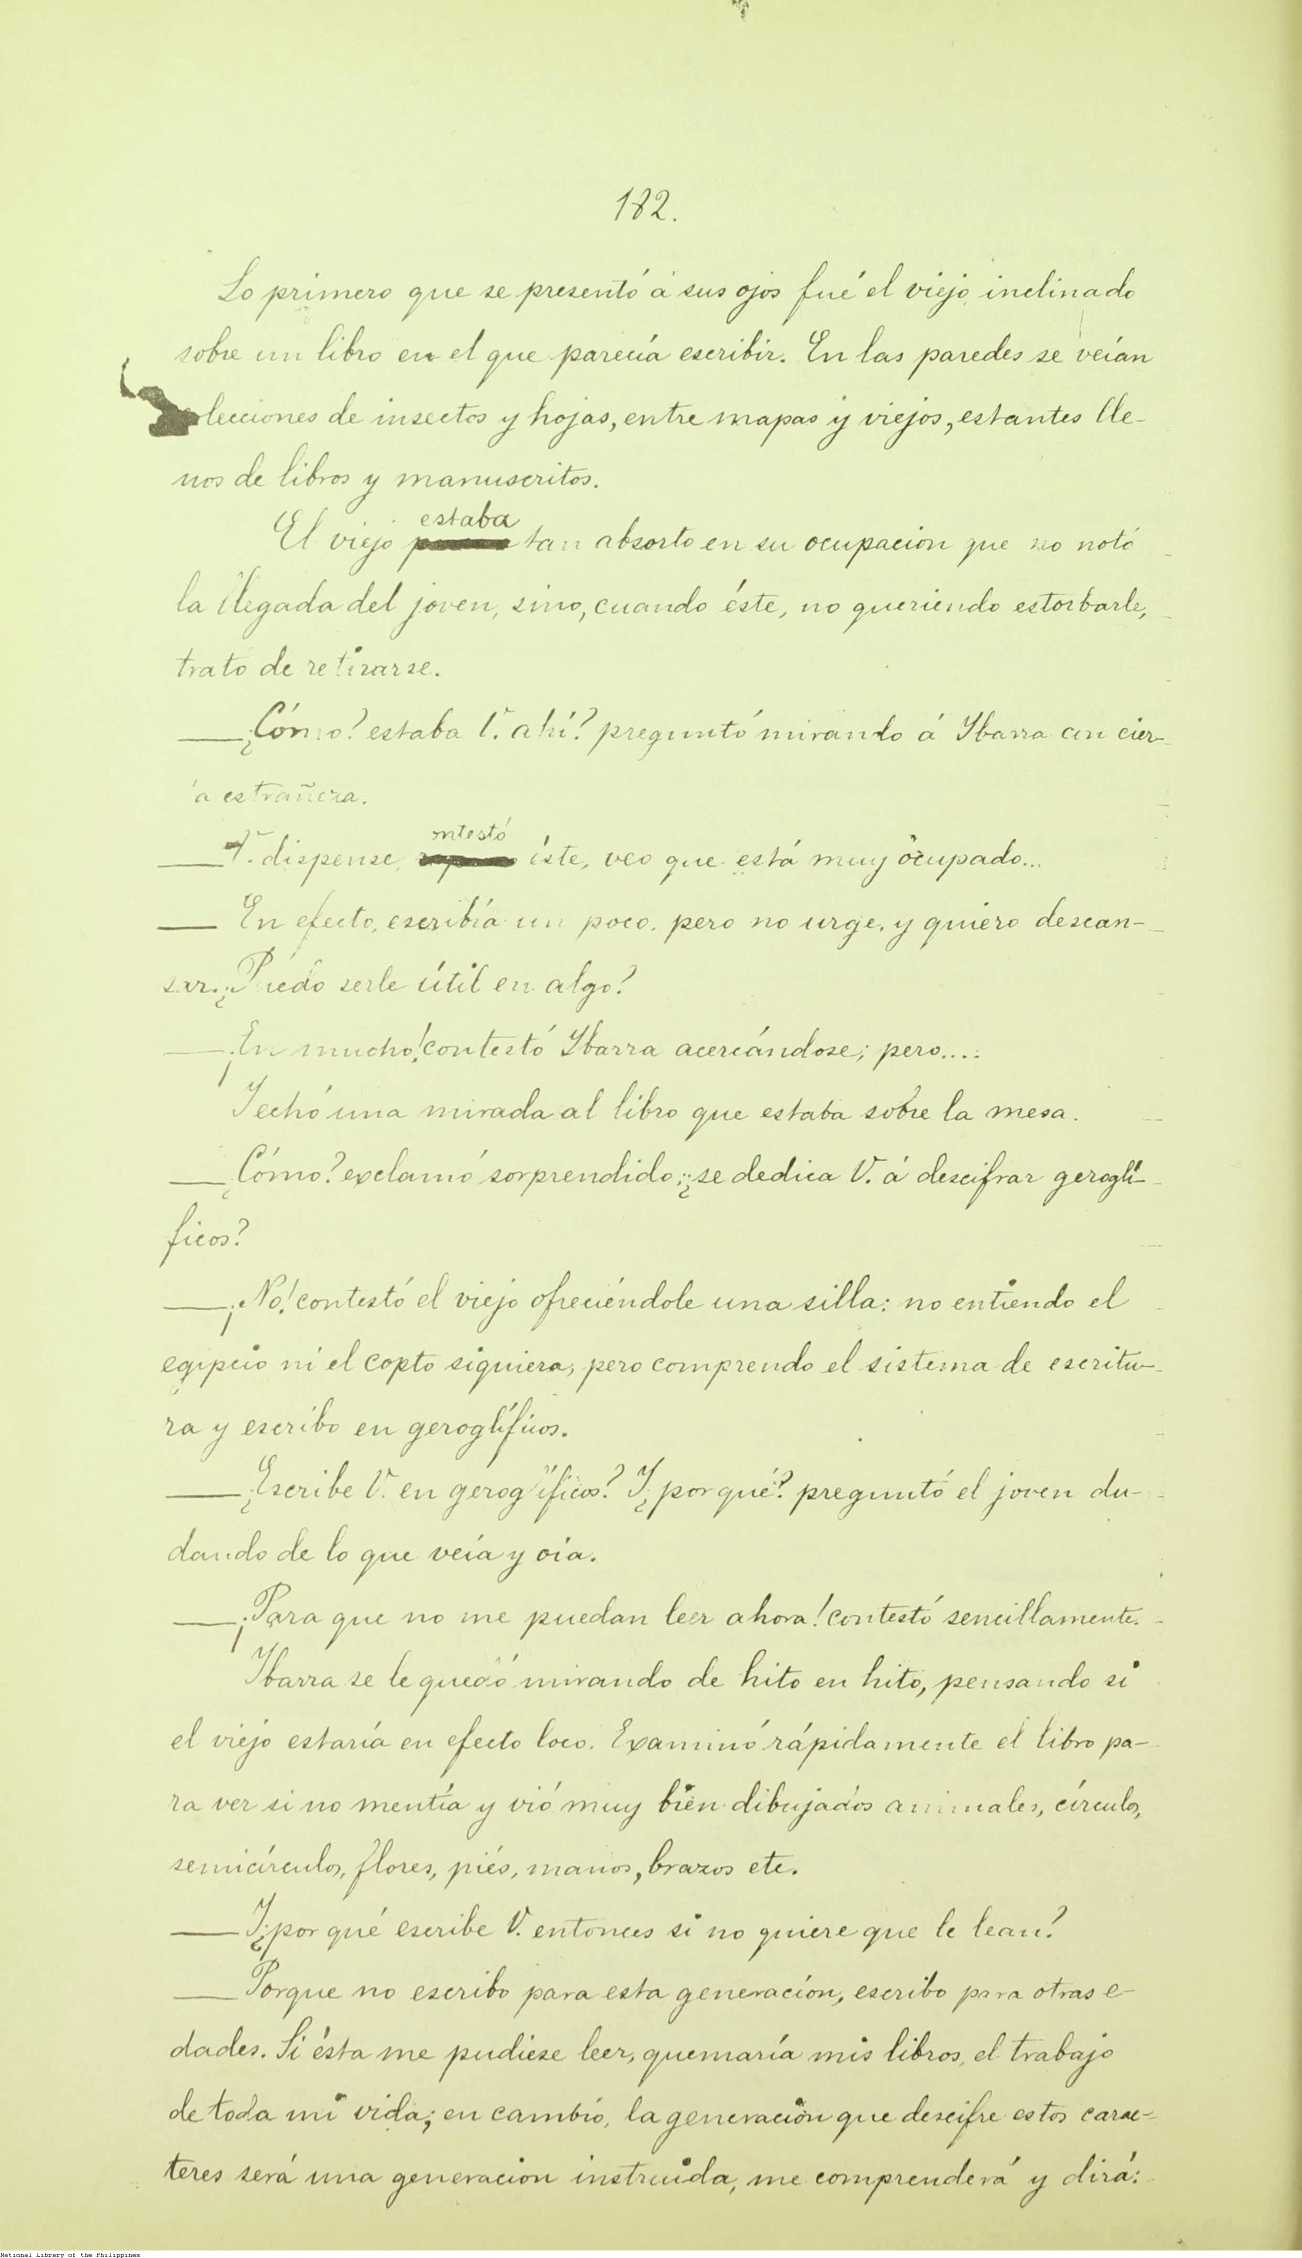 182.
Lo primero que se presentó á sus ojos fué el viejo inclinado
sobre un libro en el que parecía escribir. En las paredes se veían
lecciones de insectos y hojas, entre mapas y viejos, estantes lle-
nos de libros y manuscritos.
estaba
El viejo tan absorto en su ocupacion que no notó
la llegada del joven, sino, cuando éste, no queriendo estorbarle,
trato de retirarse.
—¿Cómo? estaba V. ahí? preguntó mirando á Ybarra con cier-
a estrañeza.
ntestó
—V. dispense, éste, veo que está muy ocupado...
— En efecto, escribía un poco, pero no urge, y quiero descan-
sar. ¿Puedo serle útil en algo?
—¡En mucho! contestó Ybarra acercándose; pero....
Y echó una mirada al libro que estaba sobre la mesa.
—¿Cómo? exclamó sorprendido; ¿se dedica V. á descifrar geroglí-
ficos?
—¡No! contestó el viejo ofreciéndole una silla: no entiendo el
egipcio ni el copto siquiera, pero comprendo el sistema de escritu-
ra y escribo en geroglíficos.
—¿Escribe V. en geroglíficos? Y ¿por qué? preguntó el joven du-
dando de lo que veía y oía.
—¡Para que no me puedan leer ahora! contestó sencillamente.
Ybarra se le quedó mirando de hito en hito, pensando si
el viejo estaría en efecto loco. Examinó rápidamente el libro pa-
ra ver si no mentía y vió muy bien dibujados animales, círculos,
semicírculos, flores, piés, manos, brazos etc.
—Y ¿por qué escribe V. entonces si no quiere que le lean?
—Porque no escribo para esta generación, escribo para otras e-
dades. Si ésta me pudiese leer, quemaría mis libros, el trabajo
de toda mi vida; en cambio, la generación que descifre estos carac-
teres será una generacion instruida, me comprenderá y dirá:
National Library of the Philippines